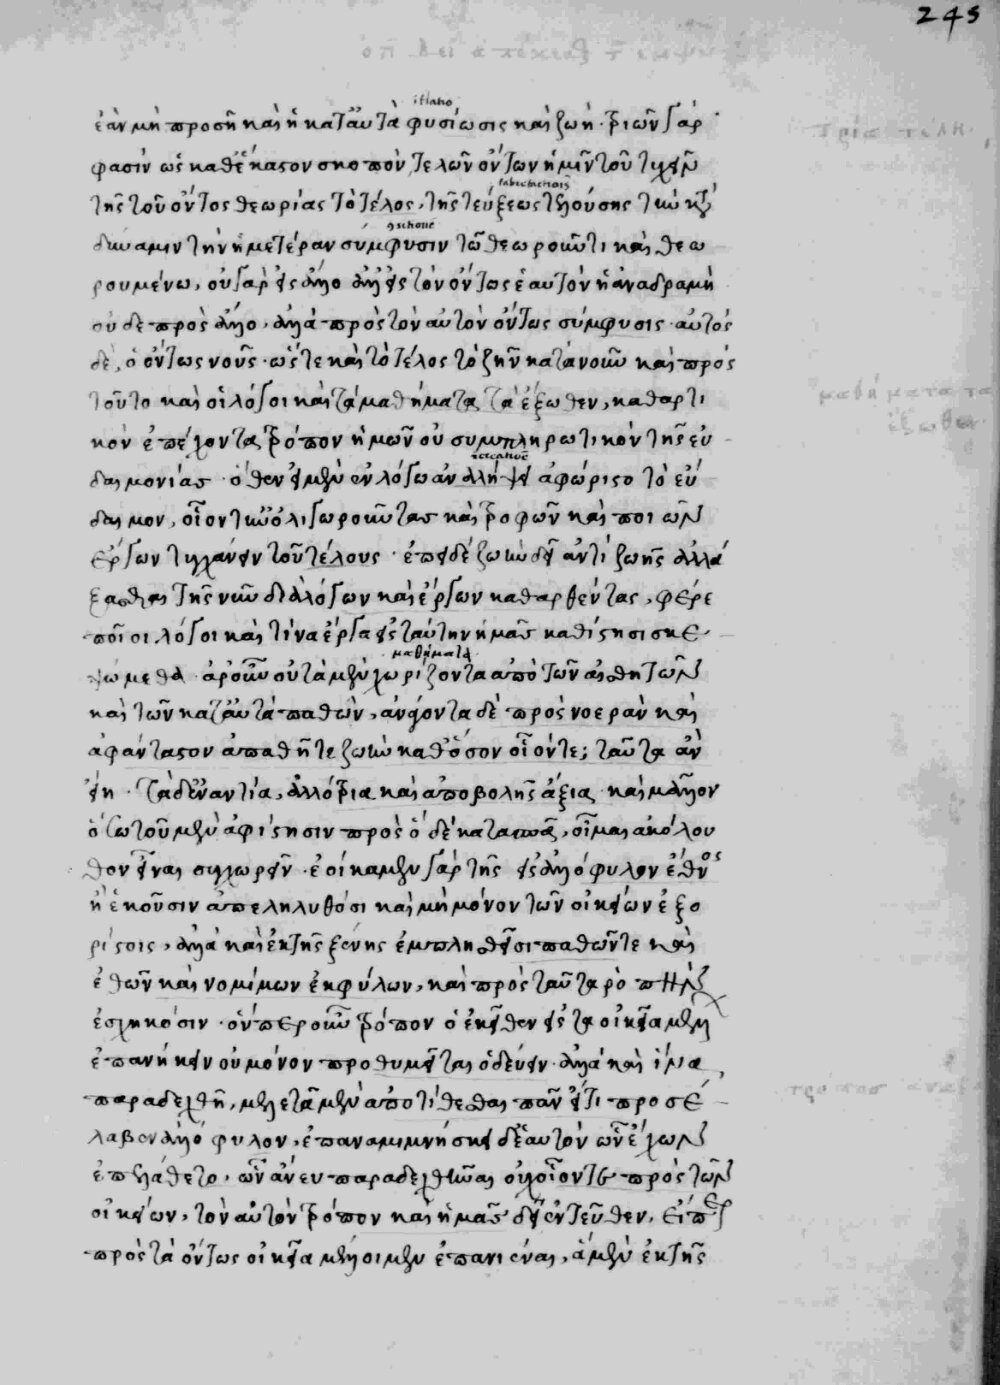 245
ἐὰν μὴ προσῆ καὶ ἡ κατ᾽ αὐτὰ φυσίωσις καὶ ζωή. τριῶν γάρ
φασὶν ὡς καθ᾽ ἕκαστον σκοπὸν τελῶν ὄντων ἡμῖν τοῦ τυχεῖν
τῆς τοῦ ὄντος θεωρίας τὸ τέλος, τῆς τεύξεως τελούσης τὴν κατὰ
δύναμιν τὴν ἡμετέραν σύμφυσιν τῶ θεωροῦντι καὶ θεω
ρουμένω, οὐ γὰρ εἰς ἄλλο ἀλλ᾽ εἰς τὸν ὄντως ἑαυτὸν ἡ ἀναδρομὴ
οὐδὲ πρὸς ἄλλο, ἀλλὰ πρὸς τὸν αὐτὸν ὄντως σύμφυσις· αὐτὸς
δὲ, ὁ ὄντως νοῦς· ὥστε καὶ τὸ τέλος τὸ ζῆν κατὰ νοῦν καὶ πρὸς
τοῦτο καὶ οἱ λόγοι καὶ τὰ μαθήματα τὰ ἔξωθεν, καθαρτι
κὸν ἐπέχοντα τρόπον ἡμῶν οὐ συμπληρωτικὸν τῆς εὐ
δαιμονίας· ὅθεν εἰ μὲν ἐν λόγω ἀναλήψει ἀφώριστο τὸ εὔ
δαιμον, οἷόν τ᾽ ἦν ὀλιγωροῦντας καὶ τροφῶν καὶ ποιῶν
ἔργων τυγχάνειν τοῦ τέλους· ἐπεὶ δὲ ζωὴν δεῖ ἀντὶ ζωῆς ἀλλά
ξασθαι τῆς νῦν διὰ λόγων καὶ ἔργων καθαρθέντας, φέρε
ποῖοι λόγοι καὶ τίνα ἔργα εἰς ταύτην ἡμᾶς καθίστησι σκε
ψώμεθα· ἆρ᾽ οὖν οὐ τὰ μὲν χωρίζοντα ἀπὸ τῶν αἰσθητῶν
καὶ τῶν κατ᾽ αὐτὰ παθῶν, ἀνάγοντα δὲ πρὸς νοερὰν καὶ
ἀφάνταστον ἀπαθῆ τε ζωὴν καθ᾽ ὅσον οἷόν τε; ταῦτα ἂν
εἴη· τὰ δ᾽ ἐναντία, ἀλλότρια καὶ ἀποβολῆς ἄξια καὶ μᾶλλον
ὅσω τοῦ μὲν ἀφίστησιν πρὸς ὃ δὲ κατασπᾶ, οἶμαι ἀκόλου
θον εἶναι συγχωρεῖν· ἐοίκαμεν γὰρ τῆς εἰς ἀλλόφυλον ἔθνος
ἢ ἑκοῦσιν ἀπεληλυθόσι καὶ μὴ μόνον τῶν οἰκείων ἐξο
ρίστοις, ἀλλὰ καὶ ἐκ τῆς ξένης ἐμπλησθεῖσι παθῶν τε καὶ
ἐθῶν καὶ νομίμων ἐκφύλων, καὶ πρὸς ταῦτα ῥοπὴν
ἐσχηκόσιν· ὅνπερ οὖν τρόπον ὁ ἐκεῖθεν εἰς τὰ οἰκεῖα μέλλων
ἐπανήκειν οὐ μόνον προθυμεῖται ὁδεύειν· ἀλλὰ καὶ ἵνα
παραδεχθῆ, μελετᾶ μὲν ἀποτίθεσθαι πᾶν εἴ τι προσέ
λαβεν ἀλλόφυλον, ἐπαναμιμνήσκει δὲ ἑαυτὸν ὧν ἔχων
ἐπελάθετο, ὧν ἄνευ παραδεχθῆναι οὐχ οἷόν τε πρὸς τῶν
οἰκείων, τὸν αὐτὸν τρόπον καὶ ἡμᾶς δεῖ ἐντεῦθεν, εἴπερ
πρὸς τὰ ὄντως οἰκεῖα μέλλοιμεν ἐπανιέναι, ἃ μὲν ἐκ τῆς
μαθήματα
τρία τέλη·
μαθήματα τὰ
ἔξωθεν